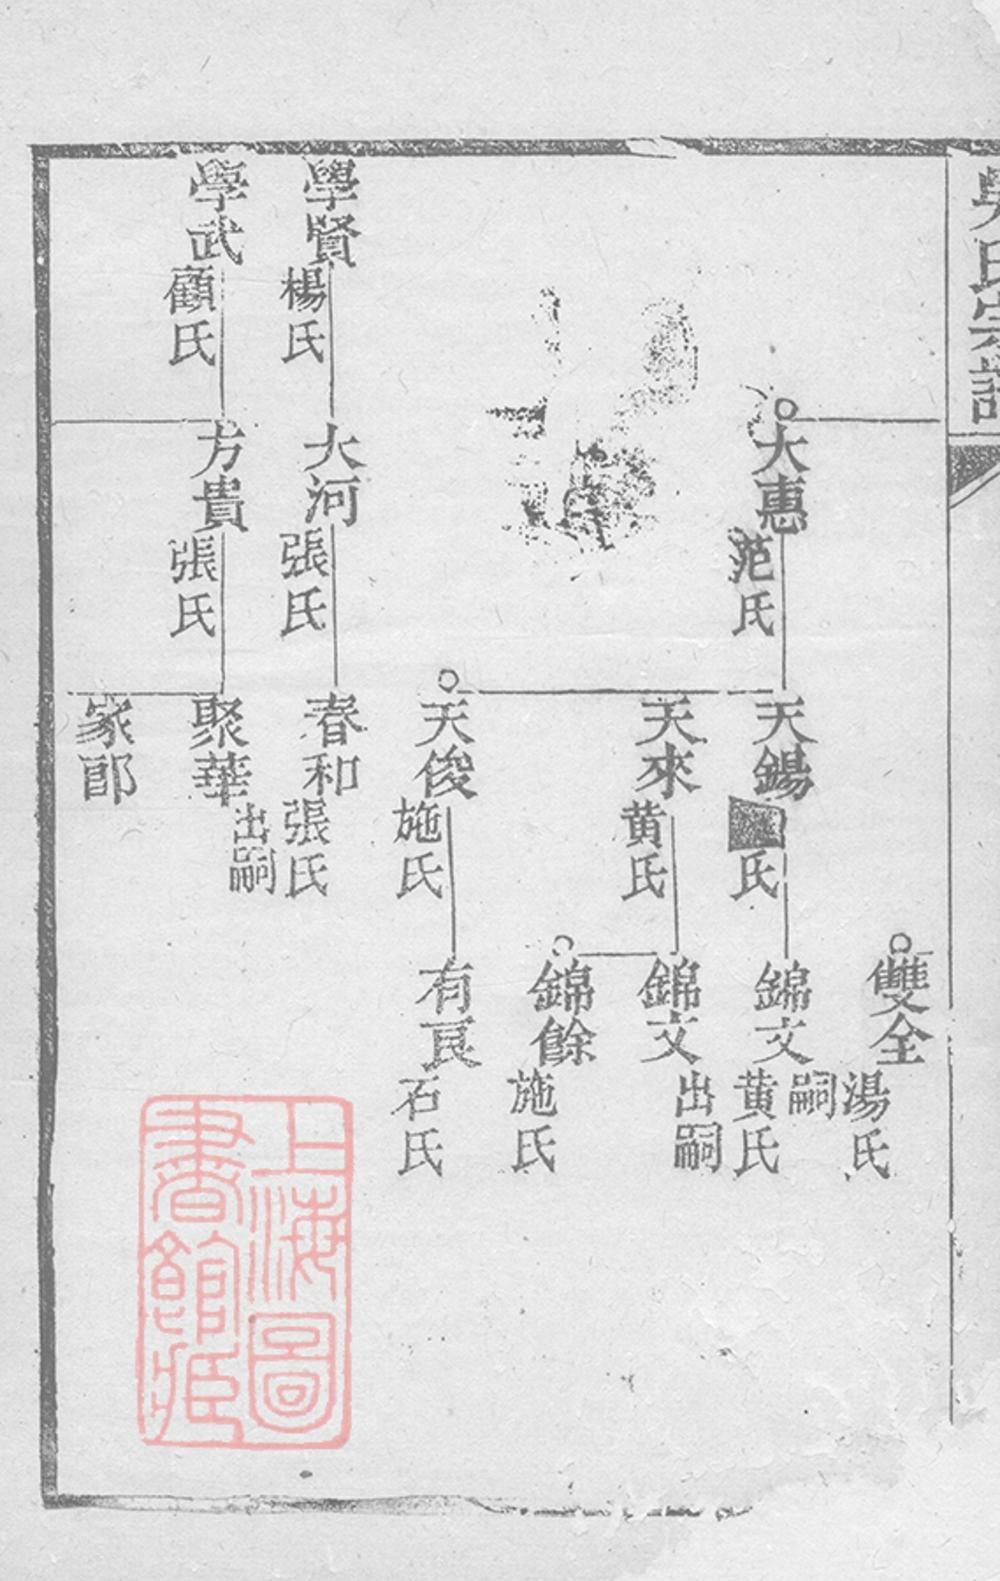 吳氏宗譜
雙全
湯氏
大惠
范氏
天錫
氏
錦文
嗣
黄氏
天來
黄氏
錦文
出嗣
錦餘
施氏
天俊
施氏
有良
石氏
學賢
楊氏
大河
張氏
春和
張氏
學武
顧氏
方貴
張氏
聚華
出嗣
家郎
上海圖
書館藏